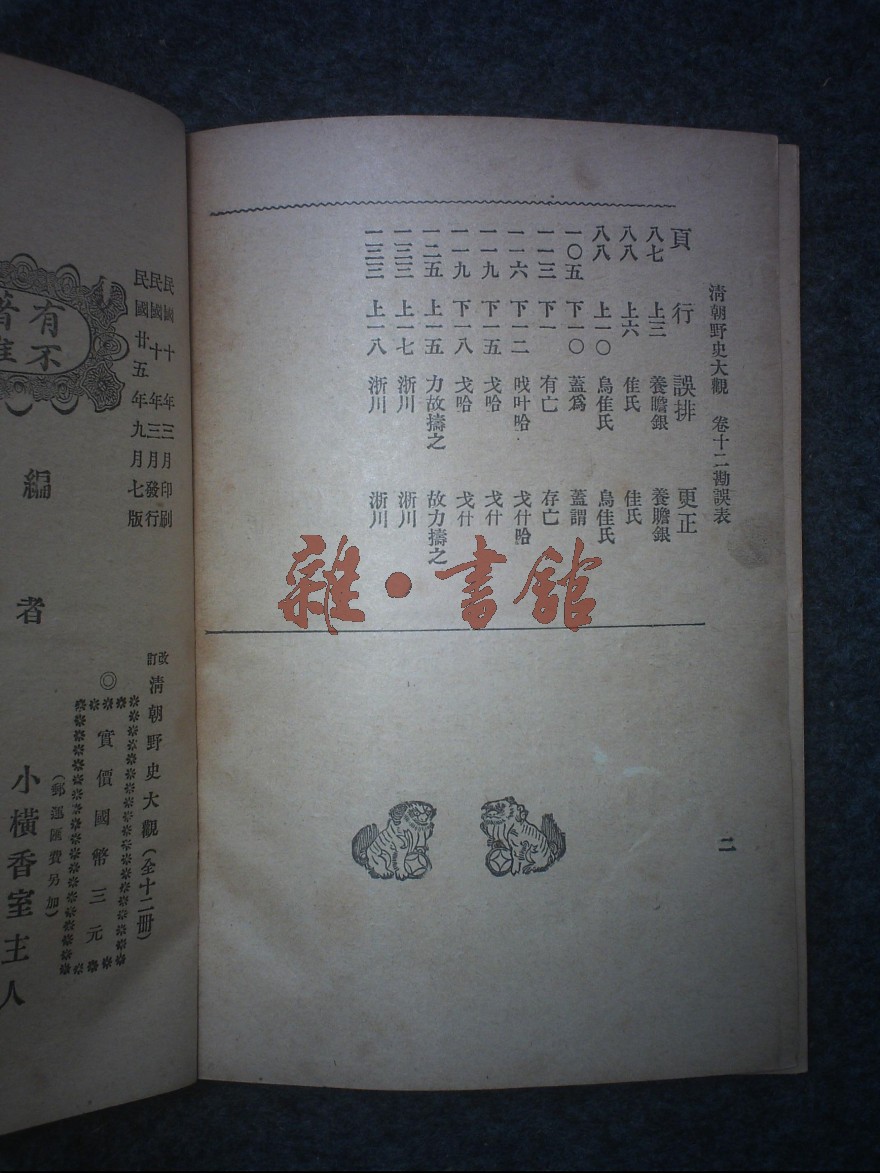 清朝野史大觀 卷十二勘誤表
二
頁 行 誤排 更正
八七 上三 養瞻銀 養贍銀
八八 上六 隹氏 佳氏
八八 上一〇 烏隹氏 烏佳氏
一〇五 下一〇 蓋爲 蓋謂
一一三 下一 有亡 存亡
一一六 下一二 哦叶哈 戈什哈
一一九 下一五 戈哈 戈什
一一九 下一八 戈哈 戈什
一二五 上一五 力故擣之 故力擣之
一三三 上一七 浙川 淅川
一三三 上一八 浙川 淅川
雜·書館
民國十年三月印刷
民國十年三月發行
民國廿五年九月七版
改訂 清朝野史大觀(全十二冊)
◎實價國幣三元
(郵運匯費另加)
編者 小橫香室主人
有不
著准